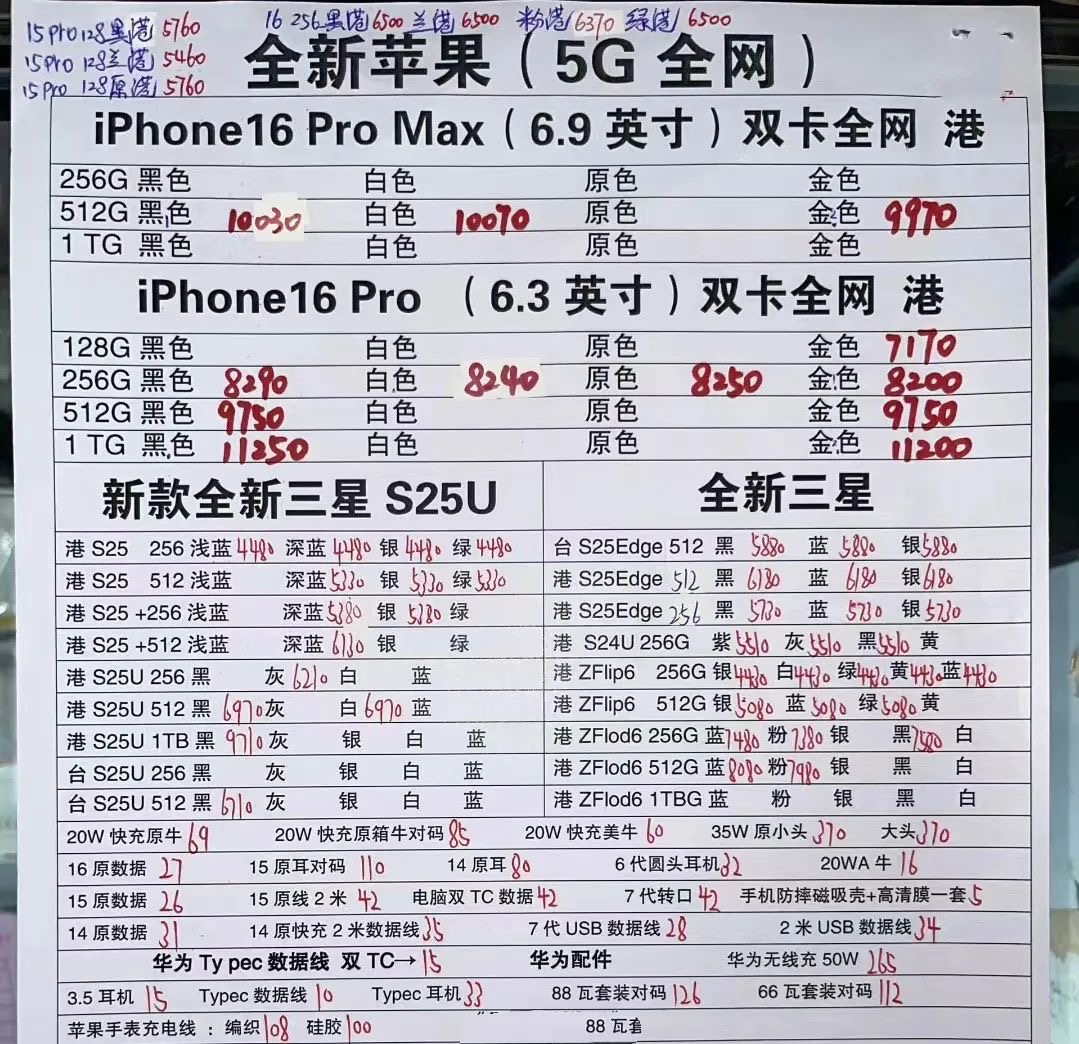 15Pro 128黑港 5760 16 256黑港 6500 兰港 6500 粉港 6370 绿港 6500
15Pro 128兰港 5460
15Pro 128原港 5760
全新苹果（5G 全网）
iPhone16 Pro Max（6.9 英寸）双卡全网 港
256G 黑色 白色 原色 金色
512G 黑色 10030 白色 10070 原色 金色 9970
1 TG 黑色 白色 原色 金色
iPhone16 Pro （6.3 英寸）双卡全网 港
128G 黑色 白色 原色 金色 7170
256G 黑色 8290 白色 8240 原色 8250 金色 8200
512G 黑色 9750 白色 原色 金色 9750
1 TG 黑色 11250 白色 原色 金色 11200
新款全新三星 S25U
港 S25 256 浅蓝 4480 深蓝 4480 银 4480 绿 4480
港 S25 512 浅蓝 深蓝 5330 银 5330 绿 5330
港 S25 +256 浅蓝 深蓝 5380 银 5380 绿
港 S25 +512 浅蓝 深蓝 6130 银 绿
港 S25U 256 黑 灰 6210 白 蓝
港 S25U 512 黑 6970 灰 白 6970 蓝
港 S25U 1TB 黑 9710 灰 银 白 蓝
台 S25U 256 黑 灰 银 白 蓝
台 S25U 512 黑 6710 灰 银 白 蓝
全新三星
台 S25Edge 512 黑 5880 蓝 5880 银 5880
港 S25Edge 512 黑 6180 蓝 6180 银 6180
港 S25Edge 256 黑 5730 蓝 5730 银 5730
港 S24U 256G 紫 5510 灰 5510 黑 5510 黄
港 ZFlip6 256G 银 4430 白 4430 绿 4430 黄 4430 蓝 4430
港 ZFlip6 512G 银 5080 蓝 5080 绿 5080 黄
港 ZFlod6 256G 蓝 7480 粉 7380 银 黑 7580 白
港 ZFlod6 512G 蓝 8080 粉 7980 银 黑 白
港 ZFlod6 1TBG 蓝 粉 银 黑 白
20W 快充原牛 69 20W 快充原箱牛对码 85 20W 快充美牛 60 35W 原小头 370 大头 370
16 原数据 27 15 原耳对码 110 14 原耳 80 6 代圆头耳机 32 20WA 牛 16
15 原数据 26 15 原线 2 米 42 电脑双 TC 数据 42 7 代转口 42 手机防摔磁吸壳+高清膜一套 5
14 原数据 31 14 原快充 2 米数据线 35 7 代 USB 数据线 28 2 米 USB 数据线 34
华为 Ty pec 数据线 双 TC→ 15 华为配件 华为无线充 50W 265
3.5 耳机 15 Typec 数据线 10 Typec 耳机 33 88 瓦套装对码 126 66 瓦套装对码 112
苹果手表充电线 ：编织 108 硅胶 100 88 瓦套